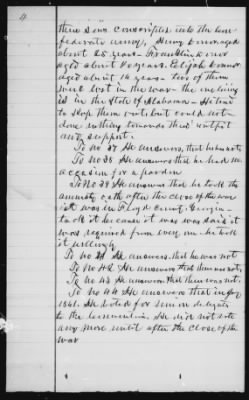 4
three Sons conscripted into the Con-
federate army, Henry Conn aged
about 25 years Franklin Conn
aged about 18 years Elijah Conn
aged about 16 years two of them
were lost in the war the
is in the State of Alabama He tried
to stop them out but could not
done nothing towards their outfit
and support.
To No 37 He answers that he was not
To No 38 He answers that he had no
occasion for a pardon
To No 39 He answers that he took the
amnesty oath after the close of the war
it was in Floyd County Georgia
took it because it was said it
was required from every one he took
it willingly
To No 41 He answers that he was not
To No 42 He answers that there was not
To No 43 He answers that there was not
To No 44 He answers that in
1861. He voted for union delegate
to the Convention. He did not vote
any more until after the close of the
war